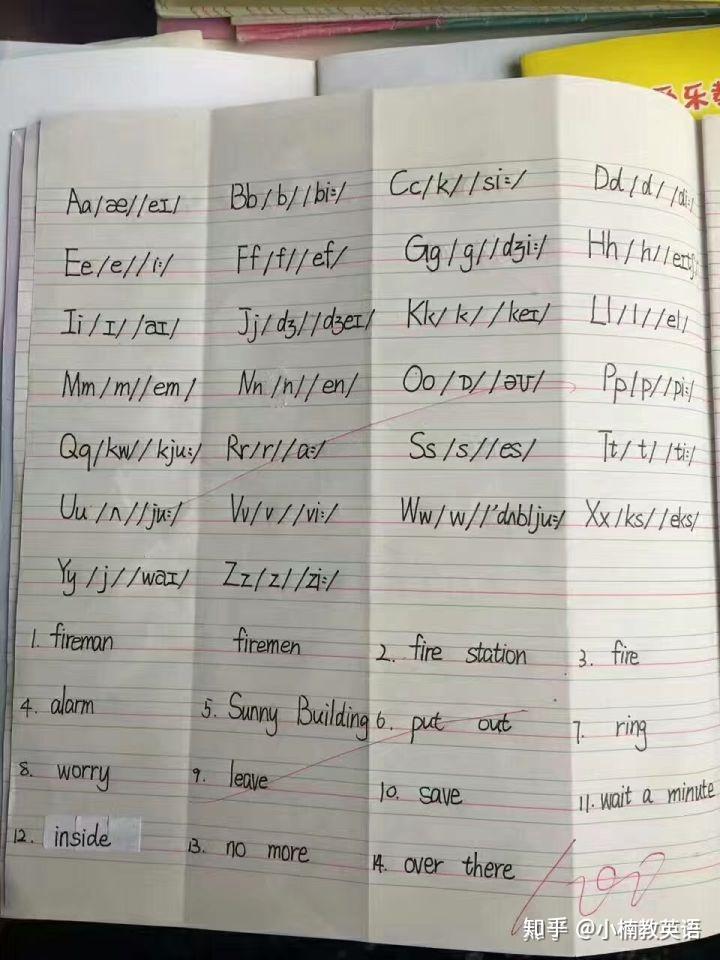 乐教
Aa /æ/ /eɪ/ Bb /b/ /bi:/ Cc /k/ /si:/ Dd /d/ /di:/
Ee /e/ /i:/ Ff /f/ /ef/ Gg /g/ /dʒi:/ Hh /h/ /eɪtʃ/
Ii /ɪ/ /aɪ/ Jj /dʒ/ /dʒeɪ/ Kk /k/ /keɪ/ Ll /l/ /el/
Mm /m/ /em/ Nn /n/ /en/ Oo /ɒ/ /əʊ/ Pp /p/ /pi:/
Qq /kw/ /kju:/ Rr /r/ /a:/ Ss /s/ /es/ Tt /t/ /ti:/
Uu /ʌ/ /ju:/ Vv /v/ /vi:/ Ww /w/ /'dʌblju:/ Xx /ks/ /eks/
Yy /j/ /waɪ/ Zz /z/ /zi:/
1. fireman firemen 2. fire station 3. fire
4. alarm 5. Sunny Building 6. put out 7. ring
8. worry 9. leave 10. save 11. wait a minute
12. inside 13. no more 14. over there
100
知乎 @小楠教英语